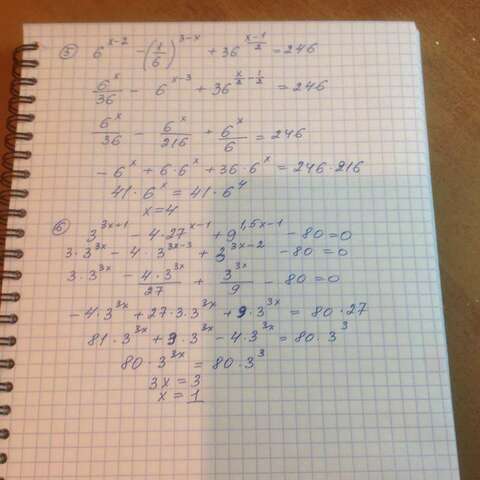 ⑤ 6^(x-2) - (1/6)^(3-x) + 36^((x-1)/2) = 246
6^x/36 - 6^(x-3) + 36^(x/2 - 1/2) = 246
6^x/36 - 6^x/216 + 6^x/6 = 246
- 6^x + 6·6^x + 36·6^x = 246·216
41·6^x = 41·6^4
x=4
⑥ 3^(3x+1) - 4·27^(x-1) + 9^(1,5x-1) - 80=0
3·3^(3x) - 4·3^(3x-3) + 3^(3x-2) - 80=0
3·3^(3x) - 4·3^(3x)/27 + 3^(3x)/9 - 80=0
-4·3^(3x) + 27·3·3^(3x) + 9·3^(3x) = 80·27
81·3^(3x) + 9·3^(3x) - 4·3^(3x) = 80·3^3
80·3^(3x) = 80·3^3
3x = 3
x = 1